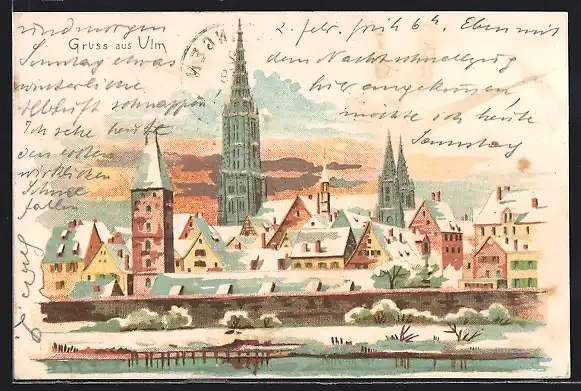 2. Febr. früh 6 h. Eben mit
dem Nachtschnellzug
hier angekommen
möchte ich heute
Sonntag
morgen
Sonntag etwas
winterliche
schnappen
Ich sehe heute
den ersten
wirklichen
Schnee
fallen
Gruss aus Ulm